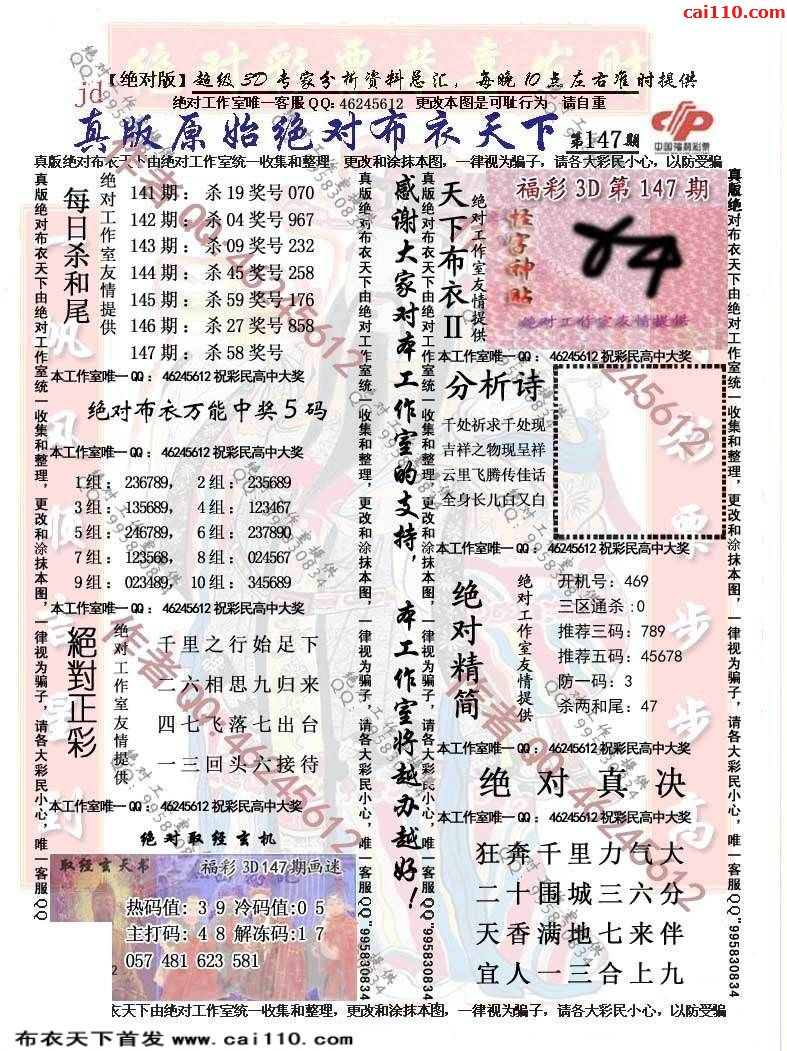 cai110.com
【绝对版】超级3D专家分析资料总汇，每晚10点左右准时提供
jd
绝对工作室唯一客服QQ：46245612 更改本图是可耻行为 请自重
真版原始绝对布衣天下 第147期
中国福利彩票
真版绝对布衣天下由绝对工作室统一收集和整理，更改和涂抹本图，一律视为骗子，请各大彩民小心，以防受骗
真版绝对布衣天下由绝对工作室统一收集和整理，更改和涂抹本图，一律视为骗子，请各大彩民小心，唯一客服QQ
每日杀和尾
绝对工作室友情提供
141期：杀19奖号070
142期：杀04奖号967
143期：杀09奖号232
144期：杀45奖号258
145期：杀59奖号176
146期：杀27奖号858
147期：杀58奖号
本工作室唯一QQ：46245612祝彩民高中大奖
绝对布衣万能中奖5码
本工作室唯一QQ：46245612祝彩民高中大奖
1组：236789， 2组：235689
3组：135689， 4组：123467
5组：246789， 6组：237890
7组：123568， 8组：024567
9组：023489， 10组：345689
本工作室唯一QQ：46245612祝彩民高中大奖
絕對正彩
绝对工作室友情提供
千里之行始足下
二六相思九归来
四七飞落七出台
一三回头六接待
本工作室唯一QQ：46245612祝彩民高中大奖
绝对取经玄机
取经玄天书 福彩3D147期画迷
热码值：39冷码值:05
主打码：48解冻码:17
057 481 623 581
真版绝对布衣天下由绝对工作室统一收集和整理，更改和涂抹本图，一律视为骗子，请各大彩民小心，唯一客服QQ"995830834
感谢大家对本工作室的支持，本工作室将越办越好！
真版绝对布衣天下由绝对工作室统一收集和整理，更改和涂抹本图，一律视为骗子，请各大彩民小心，唯一客服QQ"995830834
天下布衣II
绝对工作室友情提供
福彩3D第147期
怪字神贴
绝对工作室友情提供
本工作室唯一QQ：46245612祝彩民高中大奖
分析诗
千处祈求千处现
吉祥之物现呈祥
云里飞腾传佳话
全身长儿白又白
本工作室唯一QQ：46245612祝彩民高中大奖
绝对精简
绝对工作室友情提供
开机号：469
三区通杀:0
推荐三码：789
推荐五码：45678
防一码：3
杀两和尾：47
本工作室唯一QQ：46245612祝彩民高中大奖
绝对真决
本工作室唯一QQ：46245612祝彩民高中大奖
狂奔千里力气大
二十围城三六分
天香满地七来伴
宜人一三合上九
真版绝对布衣天下由绝对工作室统一收集和整理，更改和涂抹本图，一律视为骗子，请各大彩民小心，唯一客服QQ"995830834
衣天下由绝对工作室统一收集和整理，更改和涂抹本图，一律视为骗子，请各大彩民小心，以防受骗
布衣天下首发 www.cai110.com
作者QQ:46245612